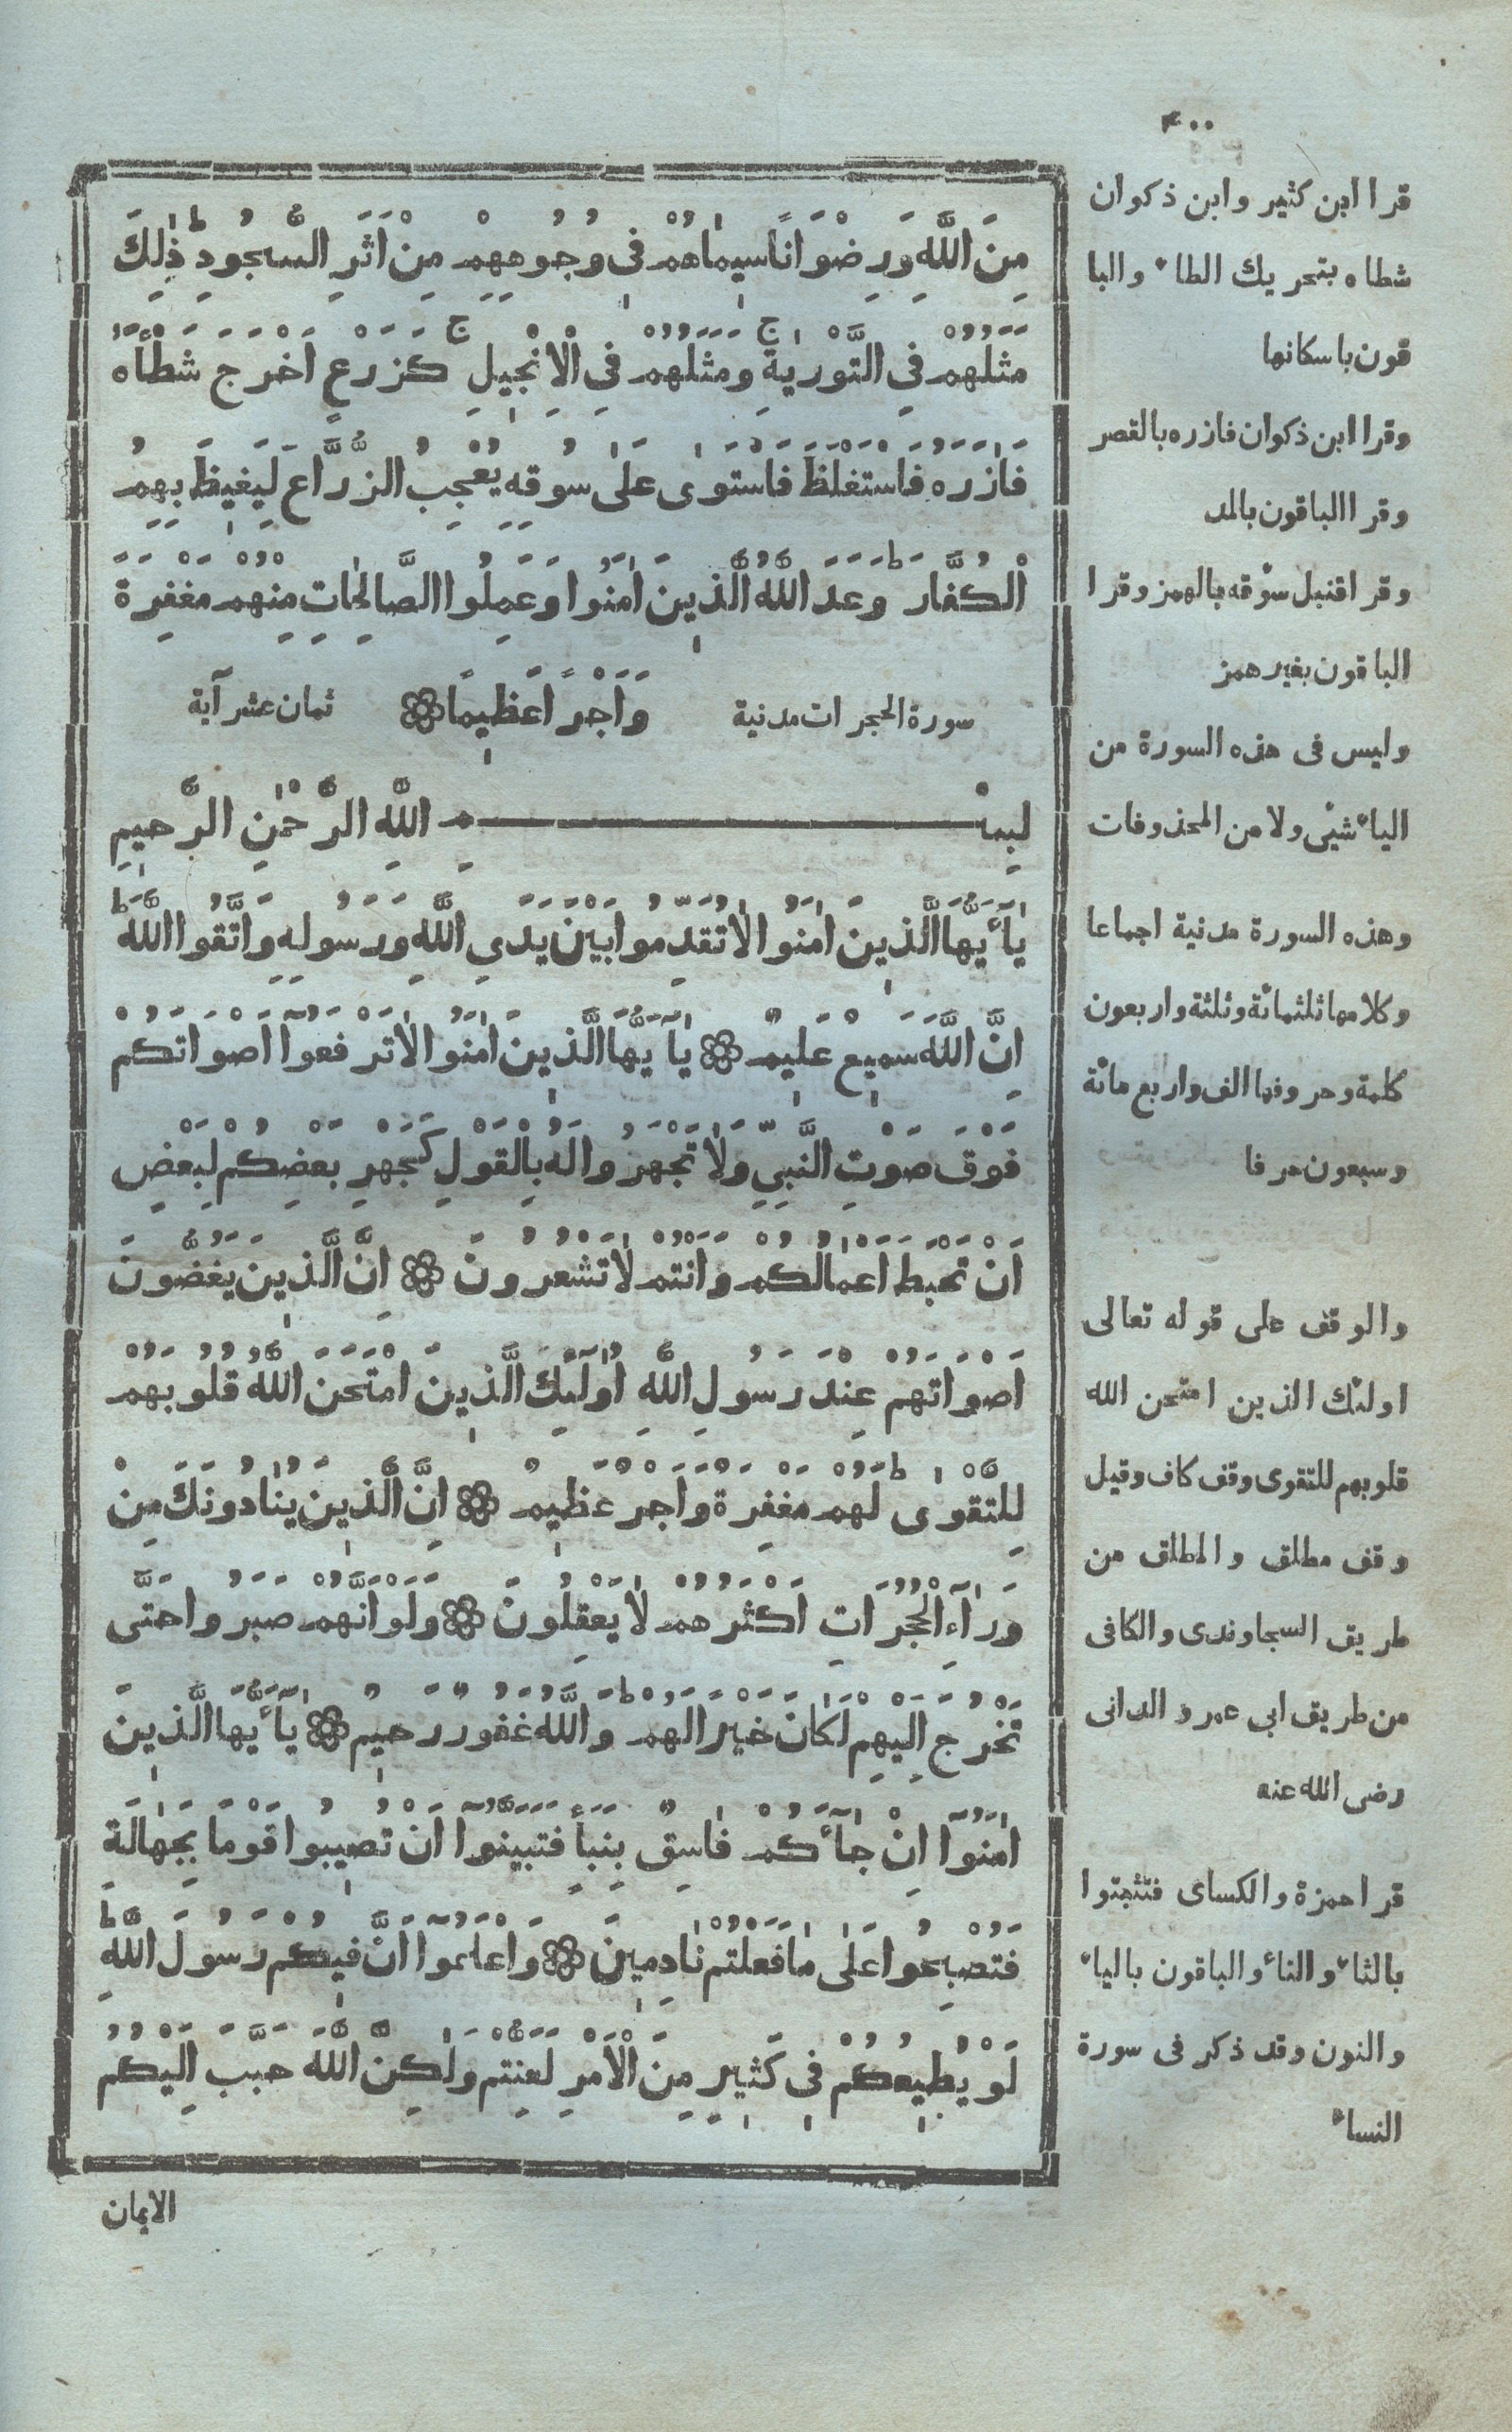 ٤٠٠
مِنَ اللَّهِ وَرِضْوَانًا سِيمَاهُمْ فِي وُجُوهِهِمْ مِنْ اَثَرِ السُّجُودِ ط ذٰلِكَ
مَثَلُهُمْ فِي التَّوْرٰيةِ ج وَمَثَلُهُمْ فِي الْاِنْجِيلِ ج كَزَرْعٍ اَخْرَجَ شَطْأَهُ
فَاٰزَرَهُ فَاسْتَغْلَظَ فَاسْتَوٰى عَلٰى سُوقِهِ يُعْجِبُ الزُّرَّاعَ لِيَغِيظَ بِهِمُ
الْكُفَّارَ ط وَعَدَ اللَّهُ الَّذِينَ اٰمَنُوا وَعَمِلُوا الصَّالِحَاتِ مِنْهُمْ مَغْفِرَةً
وَاَجْرًا عَظِيمًا
سورة الحجرات مدنية ثمان عشر آية
بِسْمِ اللَّهِ الرَّحْمٰنِ الرَّحِيمِ
يَآأَيُّهَا الَّذِينَ اٰمَنُوا لَاتُقَدِّمُوا بَيْنَ يَدَيِ اللَّهِ وَرَسُولِهِ وَاتَّقُوا اللَّهَ ط
اِنَّ اللَّهَ سَمِيعٌ عَلِيمٌ يَآاَيُّهَا الَّذِينَ اٰمَنُوا لَاتَرْفَعُوٓا اَصْوَاتَكُمْ
فَوْقَ صَوْتِ النَّبِيِّ وَلَا تَجْهَرُوا لَهُ بِالْقَوْلِ كَجَهْرِ بَعْضِكُمْ لِبَعْضٍ
اَنْ تَحْبَطَ اَعْمَالُكُمْ وَاَنْتُمْ لَا تَشْعُرُونَ اِنَّ الَّذِينَ يَغُضُّونَ
اَصْوَاتَهُمْ عِنْدَ رَسُولِ اللَّهِ اُولٰٓئِكَ الَّذِينَ امْتَحَنَ اللَّهُ قُلُوبَهُمْ
لِلتَّقْوٰى ط لَهُمْ مَغْفِرَةٌ وَاَجْرٌ عَظِيمٌ اِنَّ الَّذِينَ يُنَادُونَكَ مِنْ
وَرَآءِ الْحُجُرَاتِ اَكْثَرُهُمْ لَا يَعْقِلُونَ وَلَوْ اَنَّهُمْ صَبَرُوا حَتَّى
تَخْرُجَ اِلَيْهِمْ لَكَانَ خَيْرًا لَهُمْ ط وَاللَّهُ غَفُورٌ رَحِيمٌ يَآأَيُّهَا الَّذِينَ
اٰمَنُوٓا اِنْ جَآءَكُمْ فَاسِقٌ بِنَبَأٍ فَتَبَيَّنُوٓا اَنْ تُصِيبُوا قَوْمًا بِجَهَالَةٍ
فَتُصْبِحُوا عَلٰى مَافَعَلْتُمْ نَادِمِينَ وَاعْلَمُوٓا اَنَّ فِيكُمْ رَسُولَ اللَّهِ ط
لَوْ يُطِيعُكُمْ فِي كَثِيرٍ مِنَ الْاَمْرِ لَعَنِتُّمْ وَلٰكِنَّ اللَّهَ حَبَّبَ اِلَيْكُمُ
الايمان
قرا ابن كثير وابن ذكوان
شطاه بتحريك الطاء والبا
قون باسكانها
وقرا ابن ذكوان فازره بالقصر
وقرا الباقون بالمد
وقرا قنبل سؤقه بالهمز وقرا
الباقون بغير همز
وليس فى هذه السورة من
الياء شيء ولا من المحذوفات
وهذه السورة مدنية اجماعا
وكلامها ثلثمائة وثلثة واربعون
كلمة وحروفها الف واربع مائة
وسبعون حرفا
والوقف على قوله تعالى
اولئك الذين امتحن الله
قلوبهم للتقوى وقف كاف وقيل
وقف مطلق والمطلق من
طريق السجاوندى والكافى
من طريق ابى عمرو الدانى
رضى الله عنه
قرا حمزة والكساى فتثبتوا
بالثاء والتاء والباقون بالياء
والنون وقد ذكر فى سورة
النساء